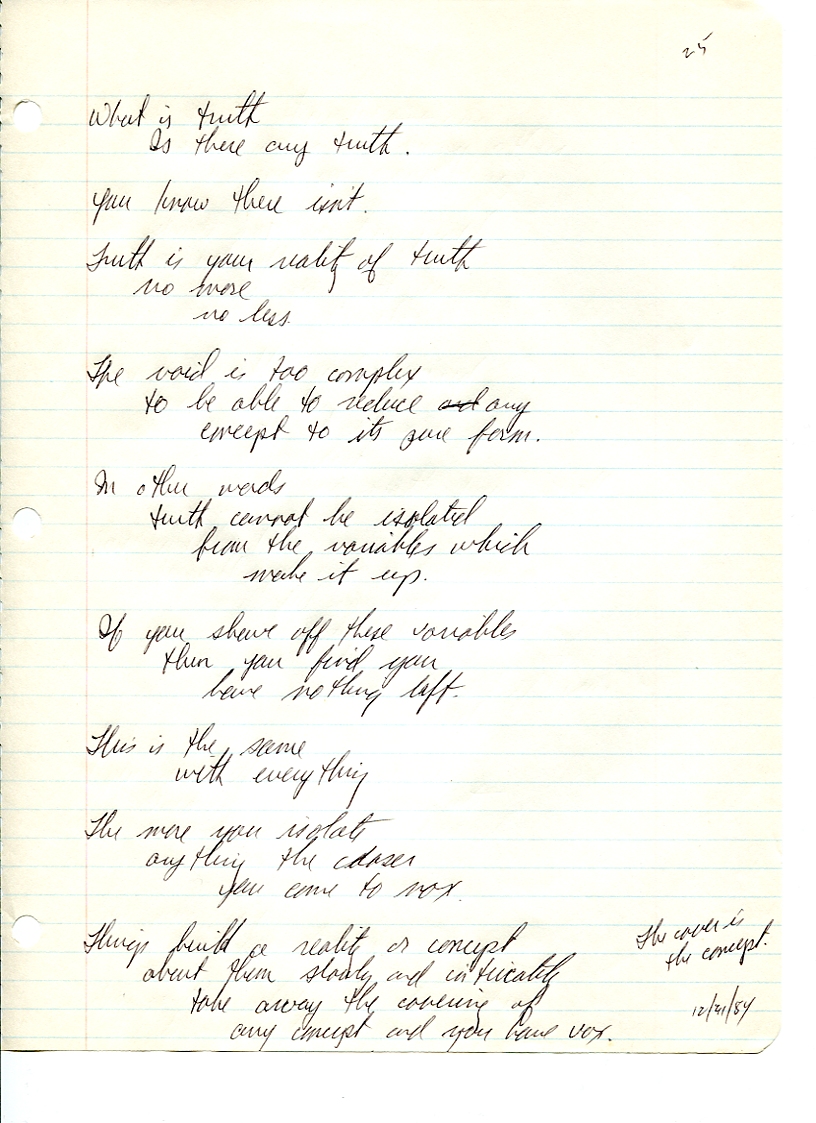 25
What is truth
Is there any truth.
you know there isn't.
Truth is your reality of truth
no more
no less.
The void is too complex
to be able to reduce any
concept to its pure form.
In other words
truth cannot be isolated
from the variables which
make it up.
If you shave off these variables
then you find you
have nothing left.
This is the same
with everything
The more you isolate
anything the closer
you come to vox.
Things build a reality or concept
about them slowly and intricately
take away the covering of
any concept and you have vox.
The cover is
the concept.